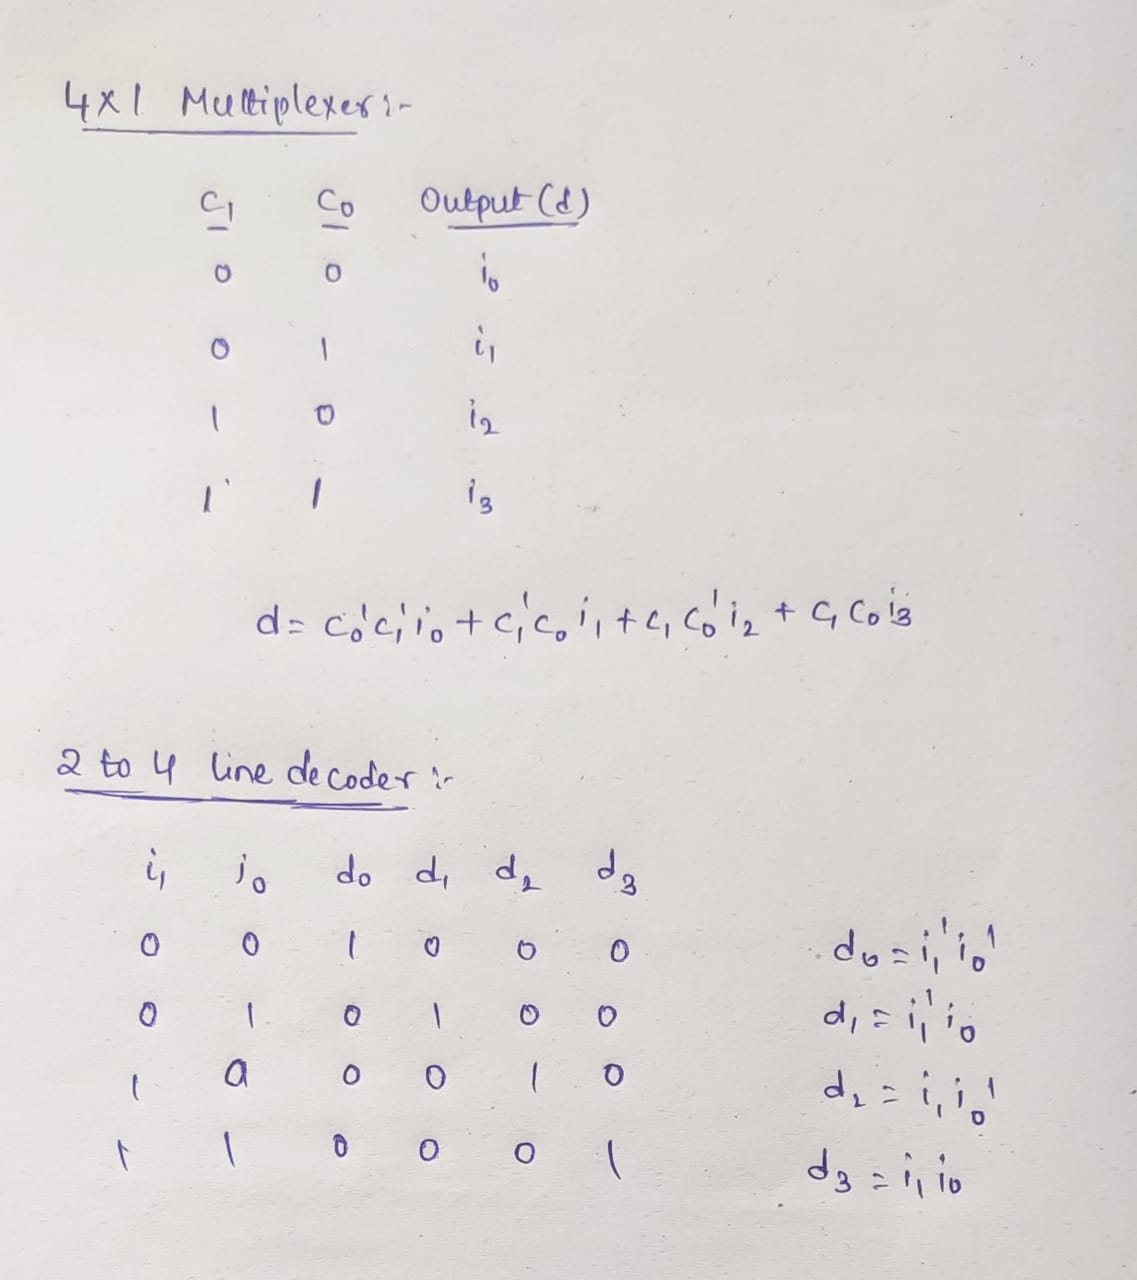 4x1 Multiplexer :-
C₁ C₀ Output (d)
0 0 i₀
0 1 i₁
1 0 i₂
1 1 i₃
d = c₀'c₁'i₀ + c₁'c₀i₁ + c₁c₀'i₂ + c₁c₀i₃
2 to 4 line decoder :-
i₁ i₀ d₀ d₁ d₂ d₃
0 0 1 0 0 0 d₀ = i₁'i₀'
0 1 0 1 0 0 d₁ = i₁'i₀
1 0 0 0 1 0 d₂ = i₁i₀'
1 1 0 0 0 1 d₃ = i₁i₀